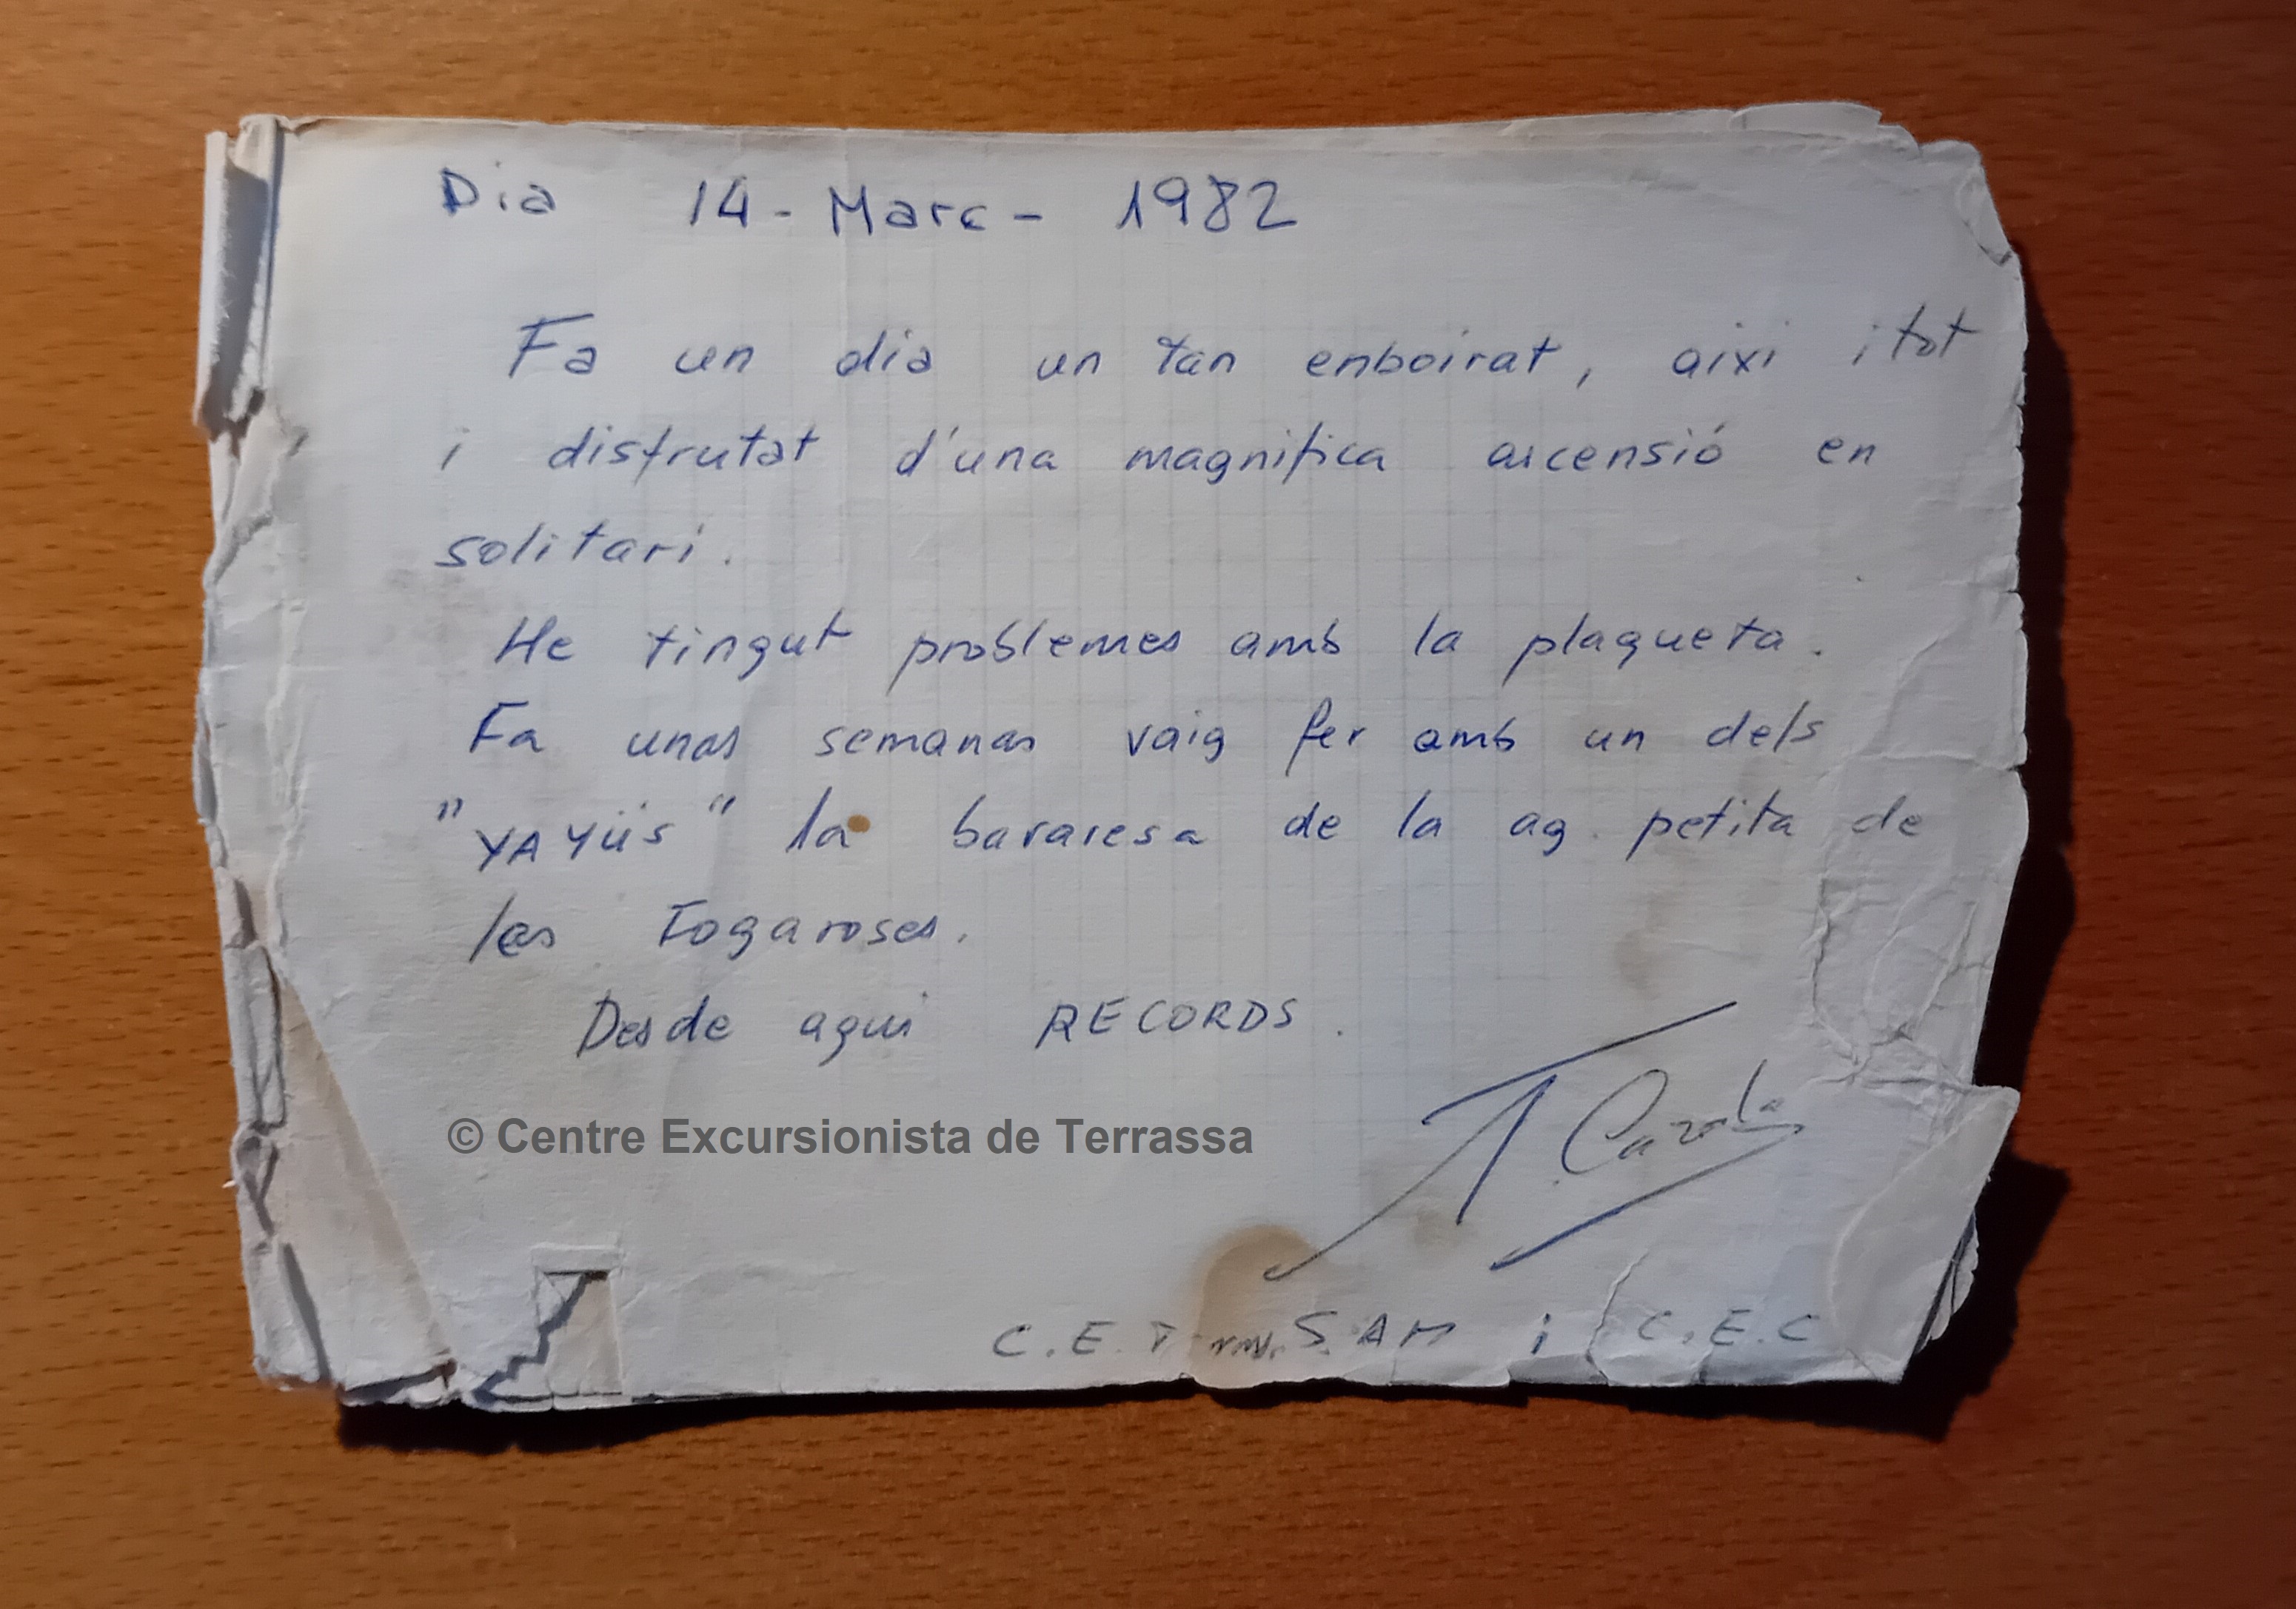 Dia 14 - Marc - 1982
Fa un dia un tan enboirat, aixi itot
i disfrutat d'una magnifica ascensió en
solitari.
He tingut problemes amb la plaqueta.
Fa unas semanas vaig fer amb un dels
"YAYÜS" la bavaresa de la ag. petita de
les Fogaroses.
Desde aqui RECORDS.
© Centre Excursionista de Terrassa
C.E.T S.AM i C.E.C